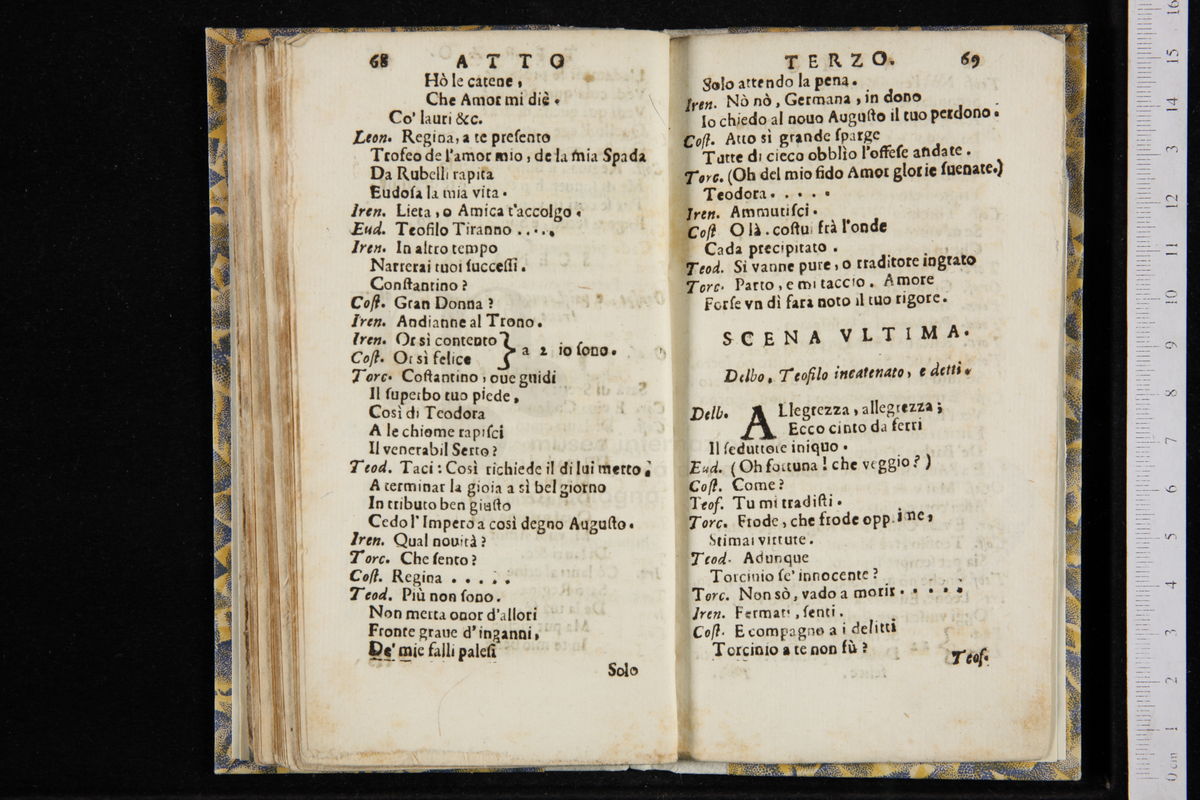 68 ATTO
Hò le catene,
Che Amor mi diè.
Co' lauri &c.
Leon. Regina, a te presento
Trofeo de l'amor mio, de la mia Spada
Da Rubelli rapita
Eudosa la mia vita.
Iren. Lieta, o Amica t'accolgo.
Eud. Teofilo Tiranno .....
Iren. In altro tempo
Narrerai tuoi successi.
Constantino?
Cost. Gran Donna?
Iren. Andianne al Trono.
Iren. Or sì contento
Cost. Or sì felice } a 2 io sono.
Torc. Costantino, oue guidi
Il superbo tuo piede,
Così di Teodora
A le chiome rapisci
Il venerabil Serto?
Teod. Taci: Così richiede il di lui merto;
A terminar la gioia a sì bel giorno
In tributo ben giusto
Cedo l'Impero a così degno Augusto.
Iren. Qual nouità?
Torc. Che sento?
Cost. Regina .....
Teod. Più non sono.
Non merta onor d'allori
Fronte graue d'inganni,
De' mie falli palesi
Solo
TERZO. 69
Solo attendo la pena.
Iren. Nò nò, Germana, in dono
Io chiedo al nouo Augusto il tuo perdono.
Cost. Atto sì grande sparge
Tutte di cieco obblìo l'offese andate.
Torc. (Oh del mio fido Amor glorie suenate.)
Teodora.....
Iren. Ammutisci.
Cost O là. costui frà l'onde
Cada precipitato.
Teod. Si vanne pure, o traditore ingrato
Torc. Parto, e mi taccio. Amore
Forse vn dì fara noto il tuo rigore.
SCENA VLTIMA.
Delbo, Teofilo incatenato, e detti.
Delb. ALlegrezza, allegrezza;
Ecco cinto da ferri
Il seduttore iniquo.
Eud. (Oh fortuna! che veggio?)
Cost. Come?
Teof. Tu mi tradisti.
Torc. Frode, che frode opprime,
Stimai virtute.
Teod. Adunque
Torcinio se' innocente?
Torc. Non sò, vado a morir.....
Iren. Fermati, senti.
Cost. E compagno a i delitti
Torcinio a te non fù?
Teof.
0 cm 1 2 3 4 5 6 7 8 9 10 11 12 3 14 15 16